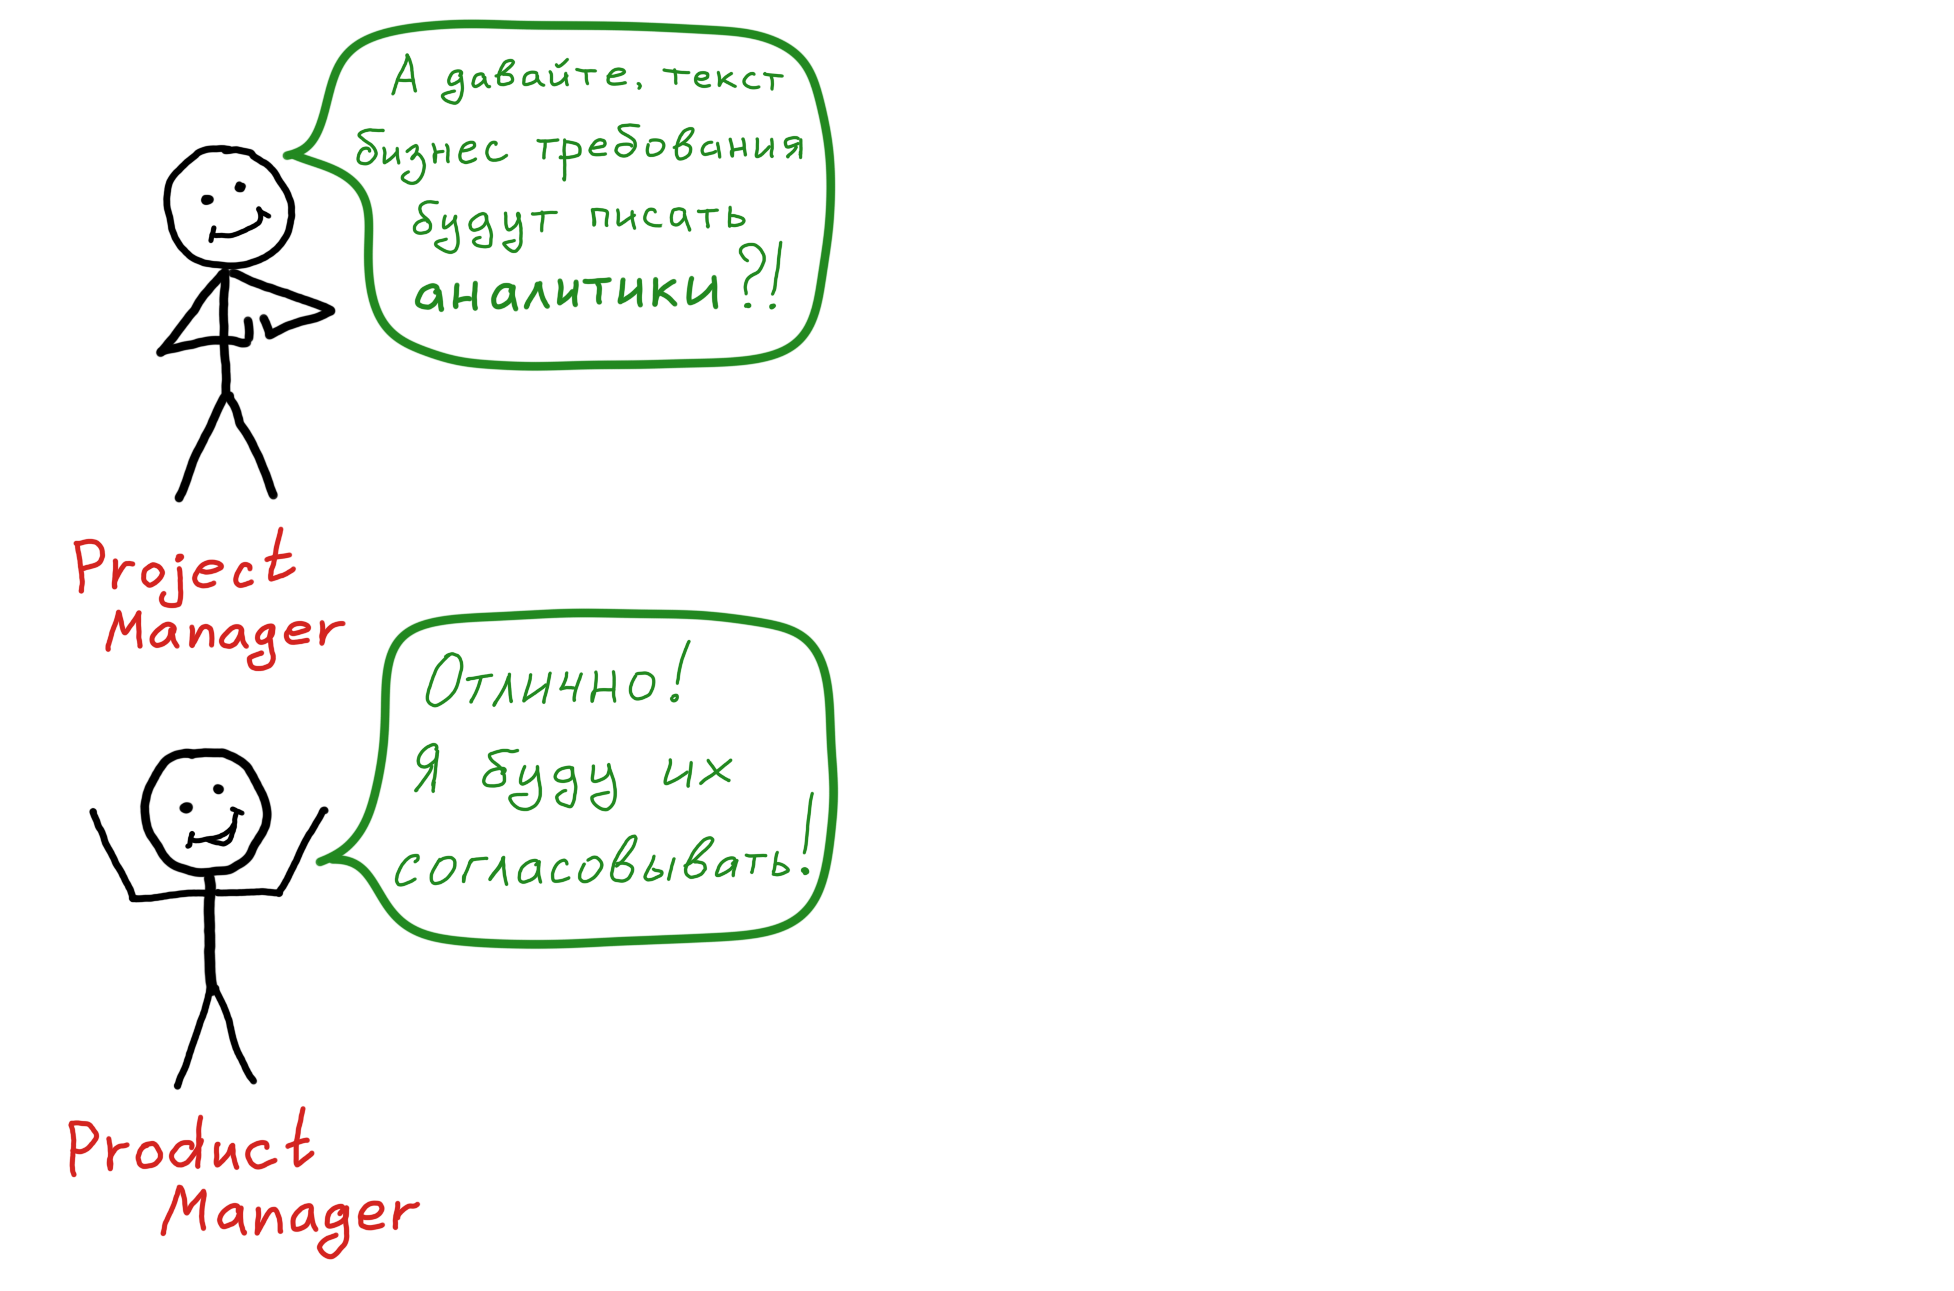 А давайте, текст
бизнес требования
будут писать
аналитики?!
Project
Manager
Отлично!
Я буду их
согласовывать!
Product
Manager